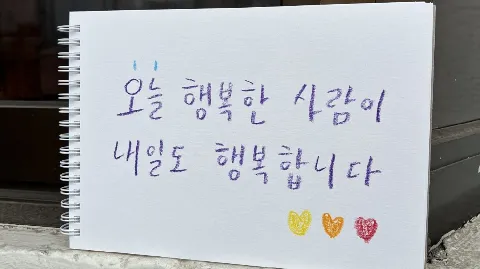 오늘 행복한 사람이
내일도 행복합니다